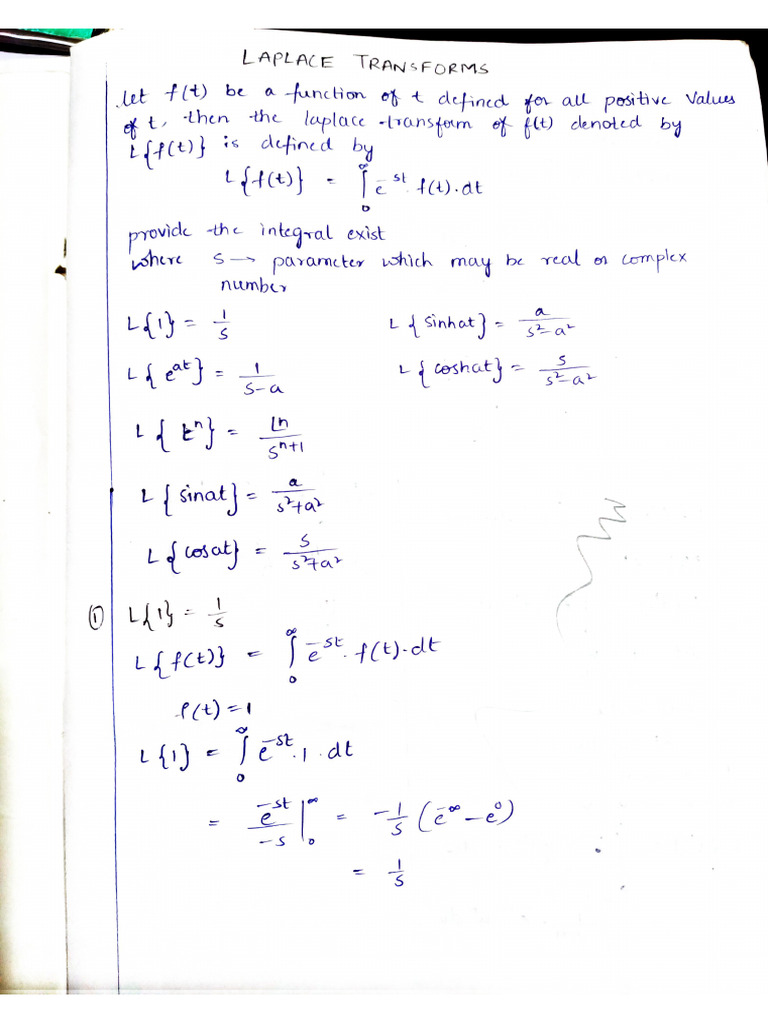 LAPLACE TRANSFORMS
Let f(t) be a function of t defined for all positive values
of t, then the laplace transform of f(t) denoted by
L{f(t)} is defined by
L{f(t)} = ∫₀^∞ e^-st f(t).dt
provide the integral exist
where s → parameter which may be real or complex
number
L{1} = 1/s    L{sinhat} = a/(s²-a²)
L{e^at} = 1/(s-a)    L{coshat} = s/(s²-a²)
L{t^n} = ⌊n/s^(n+1)
L{sinat} = a/(s²+a²)
L{cosat} = s/(s²+a²)
① L{1} = 1/s
L{f(t)} = ∫₀^∞ e^-st . f(t).dt
f(t) = 1
L{1} = ∫₀^∞ e^-st . 1 . dt
= e^-st/-s |₀^∞ = -1/s (e^-∞ - e^0)
= 1/s